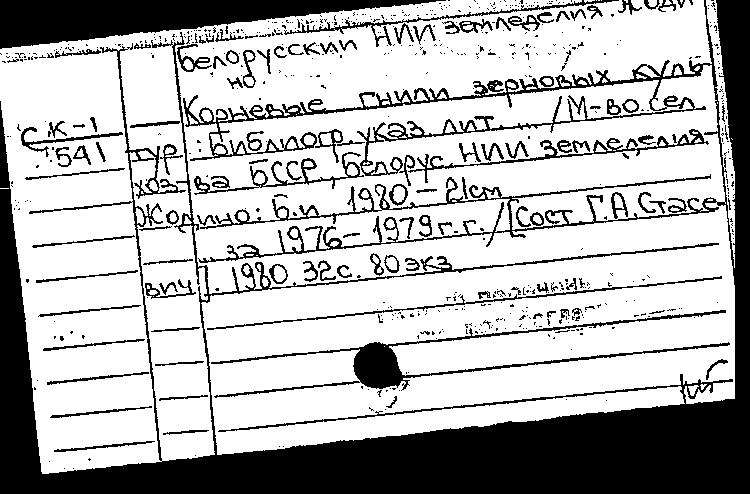 Белорусский НИИ земледелия. Жоди
но.
Корневые гнили зерновых куль-
СК-1
541
тур: Библиогр. указ. лит. ... / М-во сел.
хоз-ва БССР, Белорус. НИИ земледелия.-
Жодино: Б.и., 1980. - 21см
... за 1976-1979 г.г. / [Сост. Г.А. Стасе-
вич]. 1980. 32с. 80экз.